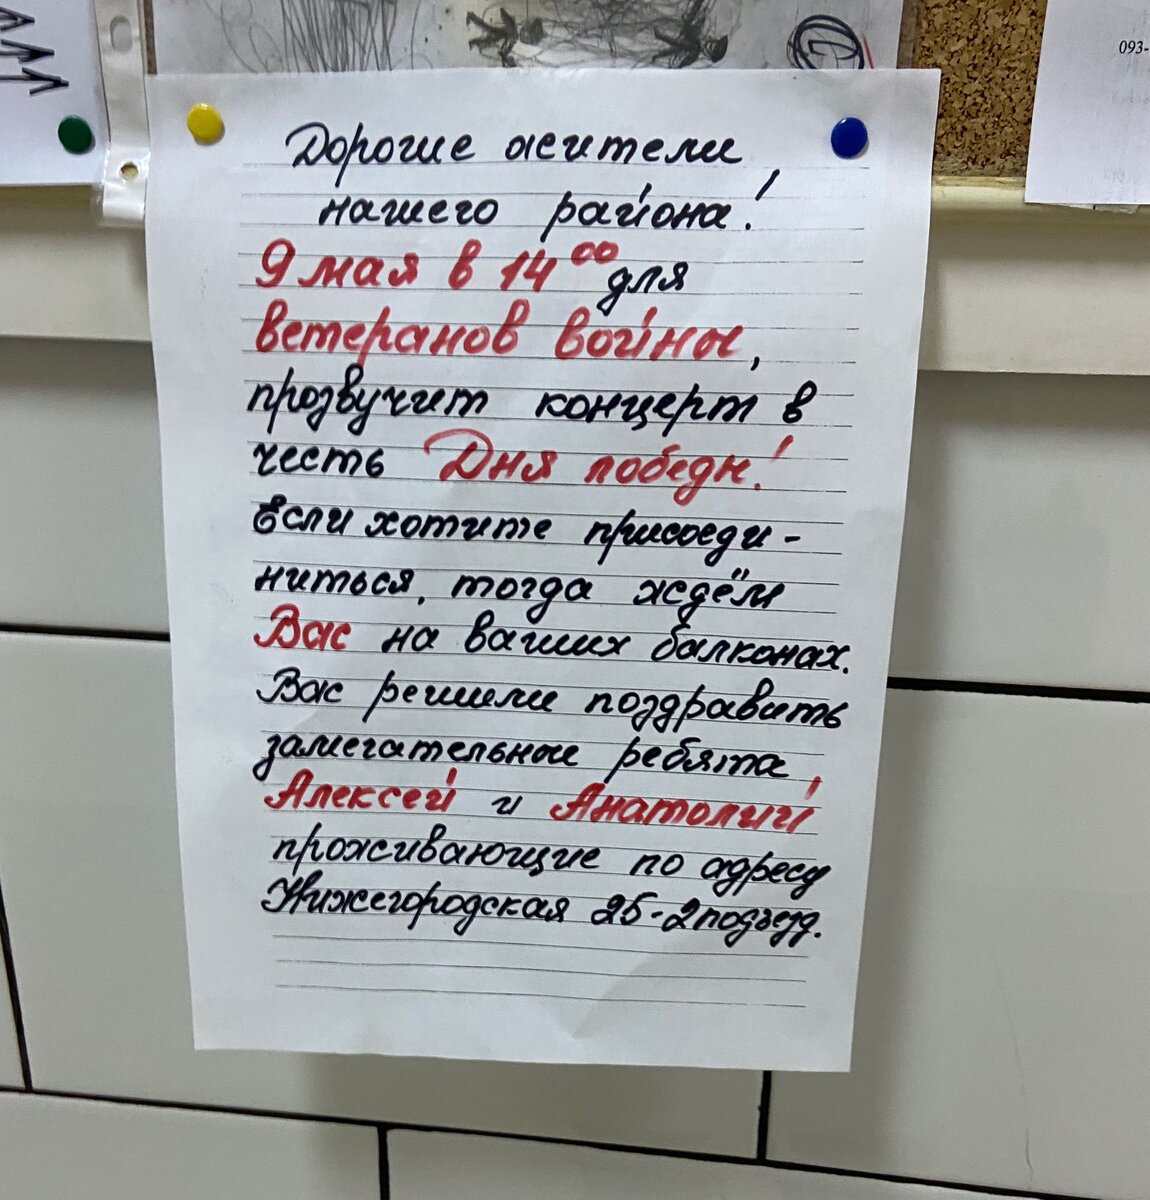 093-
Дорогие жители
нашего района!
9 мая в 14⁰⁰ для
ветеранов войны,
прозвучит концерт в
честь Дня победы!
Если хотите присоеди-
ниться, тогда ждём
Вас на ваших балконах.
Вас решили поздравить
замечательные ребята,
Алексей и Анатолий
проживающие по адресу
Нижегородская 25-2 подъезд.